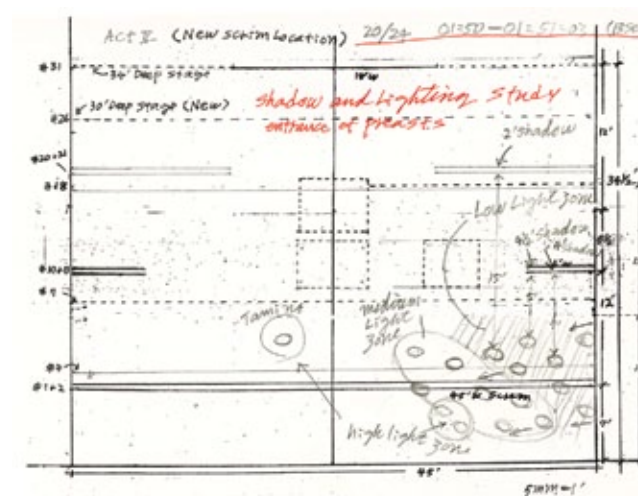 Act II (New Scrim Location) 20/24 01:50-01:51:02
#31
34' Deep stage
18'W
30' Deep stage (New)
#26
Shadow and Lighting Study
entrance of preasts
2' shadow
12'
#20+21
#18
34 1/2'
Low Light Zone
shadow
#10+8
15'
12'
Tamino
medium
Light
Zone
#1+2
45' W Scrim
high light
Zone
7'
45'
5mm=1'